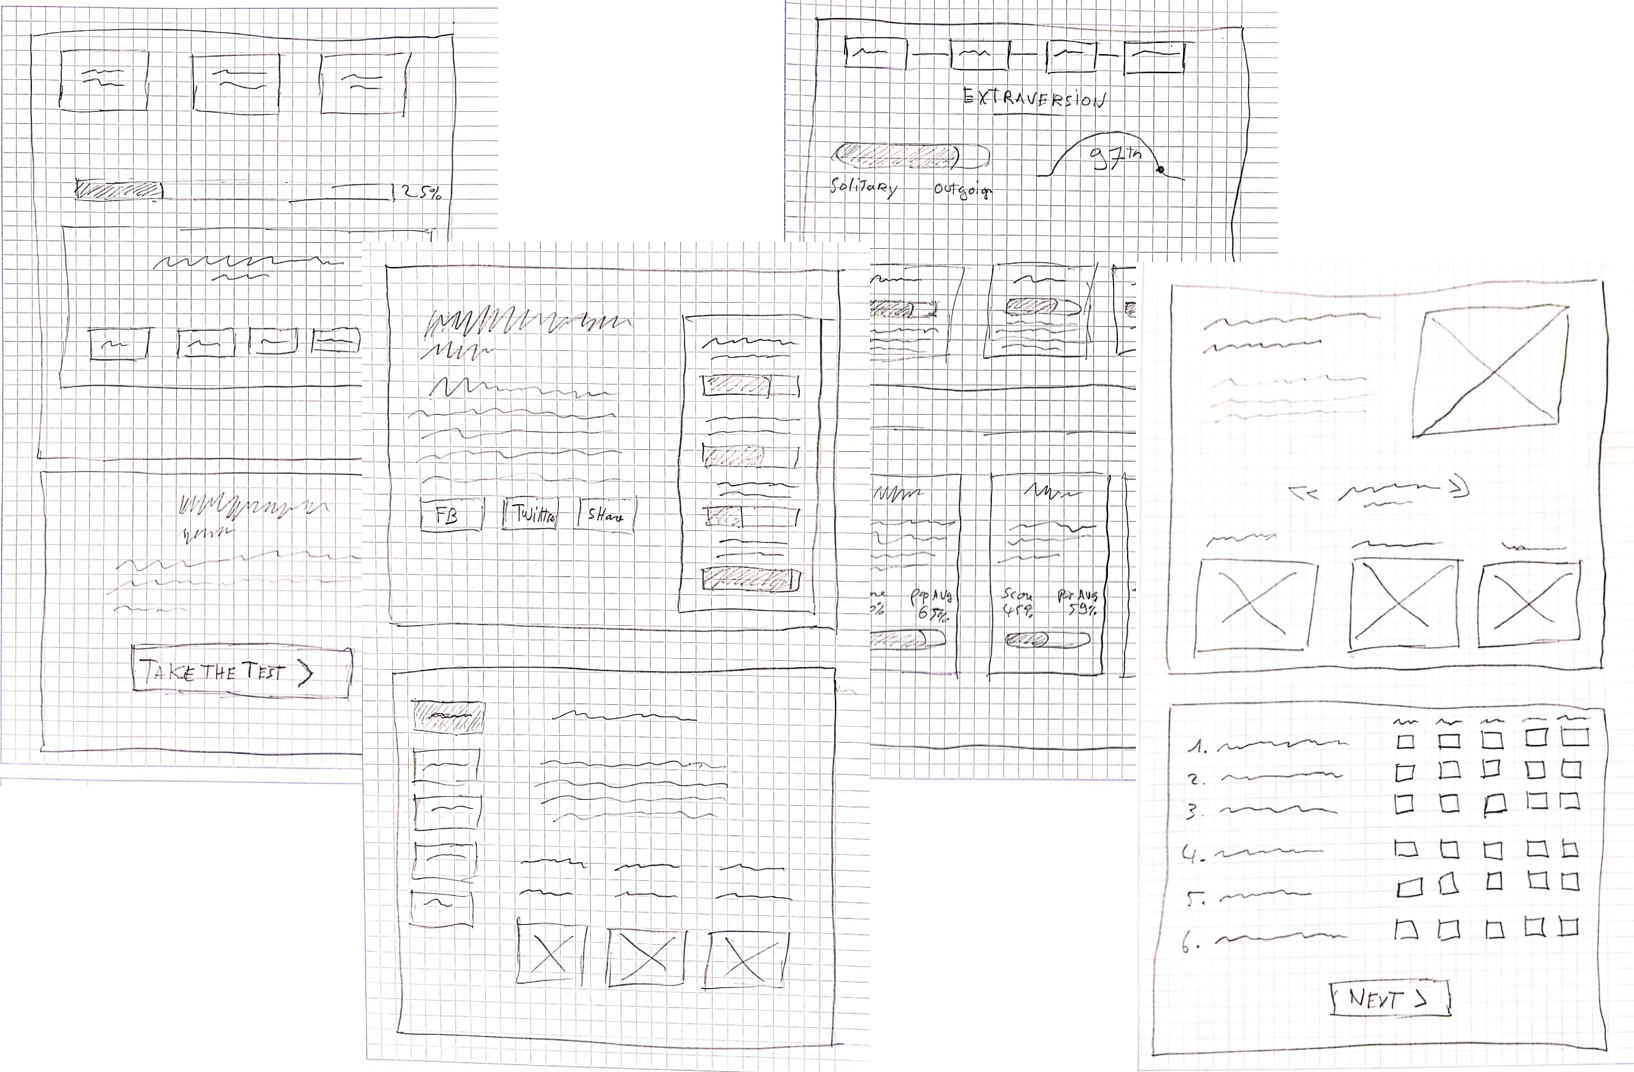 25%
TAKE THE TEST >
FB
Twitter
SHare
EXTRAVERSION
97th
Solitary
outgoign
pop Avg
65%
Score
45%
Pop Avg
59%
1.
2.
3.
4.
5.
6.
NEXT >